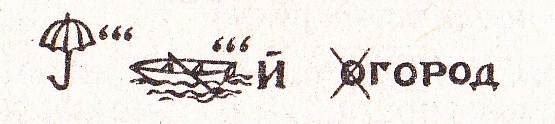 ‘‘‘ ‘‘‘ Й ОГОРОД